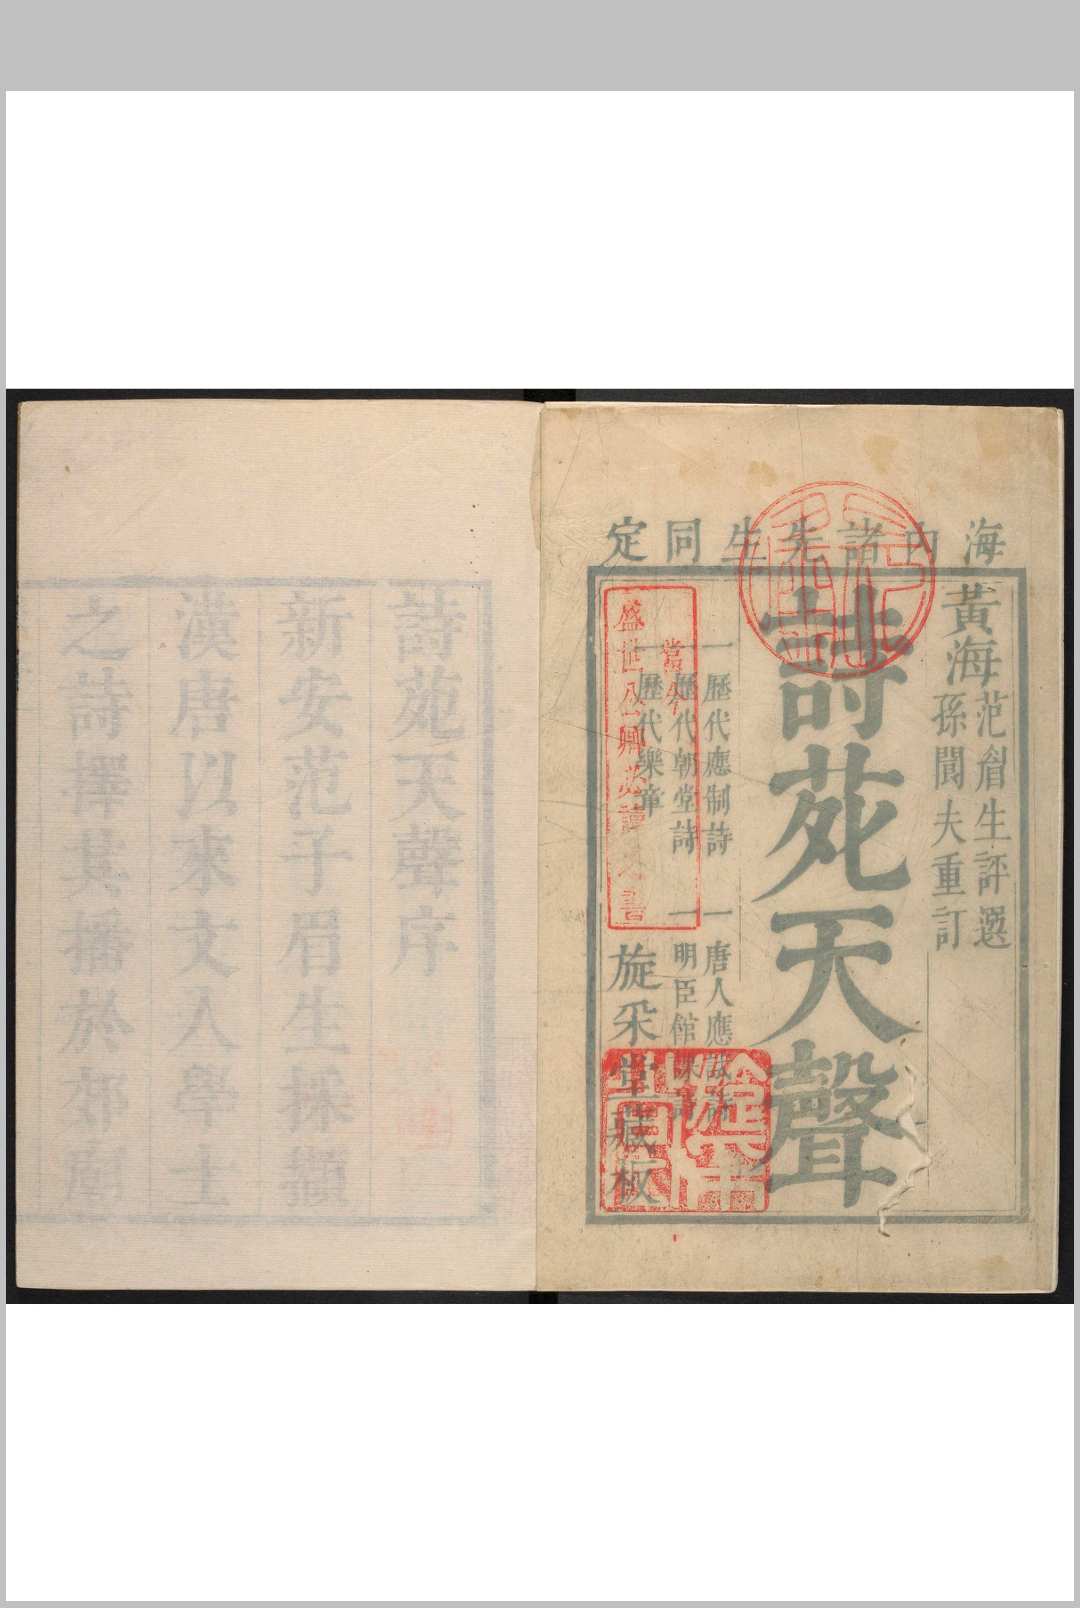 海內諸先生同定
黃海
范眉生評選
孫聞夫重訂
詩苑天聲
一歷代應制詩
一唐人應試詩
一歷代朝堂詩
一明臣館課詩
一歷代樂章
旋采堂藏板
詩苑天聲序
新安范子眉生採
漢唐以來文人學士
之詩擇其播於郊廟